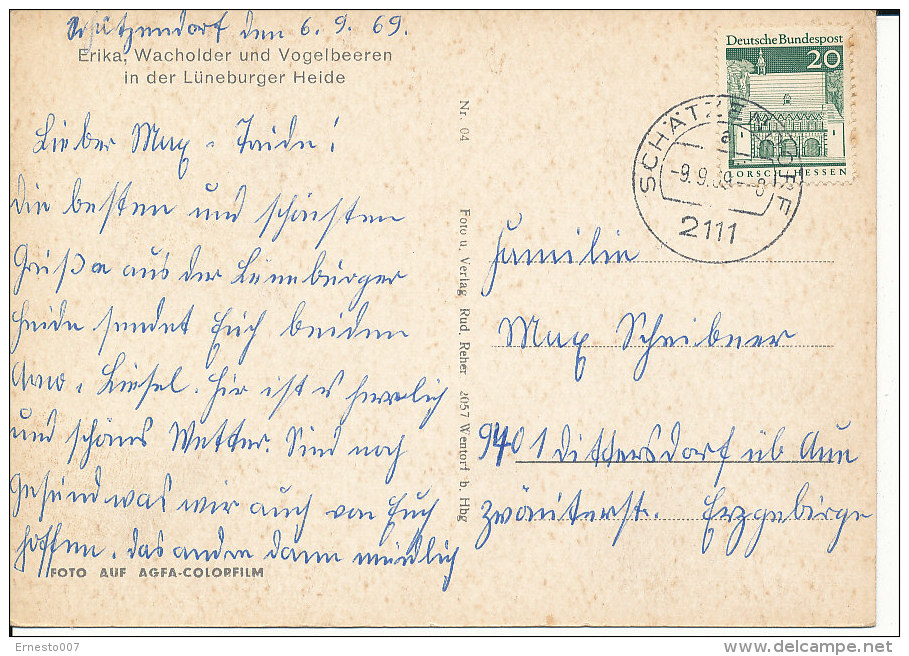 Schätzendorf den 6. 9. 69.
Erika, Wacholder und Vogelbeeren
in der Lüneburger Heide
Lieber Max +
Die besten und schönsten
Grüße aus der Lüneburger
Heide sendet Euch beiden
Arno + Liesel. Hir ist es herrlich
und schönes Wetter. Sind noch
Gesund was wir auch von Euch
hoffen. das andre dann mündlich
FOTO AUF AGFA-COLORFILM
Nr. 04
Foto u. Verlag Rud. Reher 2057 Wentorf b. Hbg
Deutsche Bundespost
20
LORSCH/HESSEN
SCHÄTZENDORF
a
-9. 9.69-8
2111
Familie
Max Schreibner
9401 Dittersdorf üb Aue
Erzgebirge
Ernesto007
delcampe.net